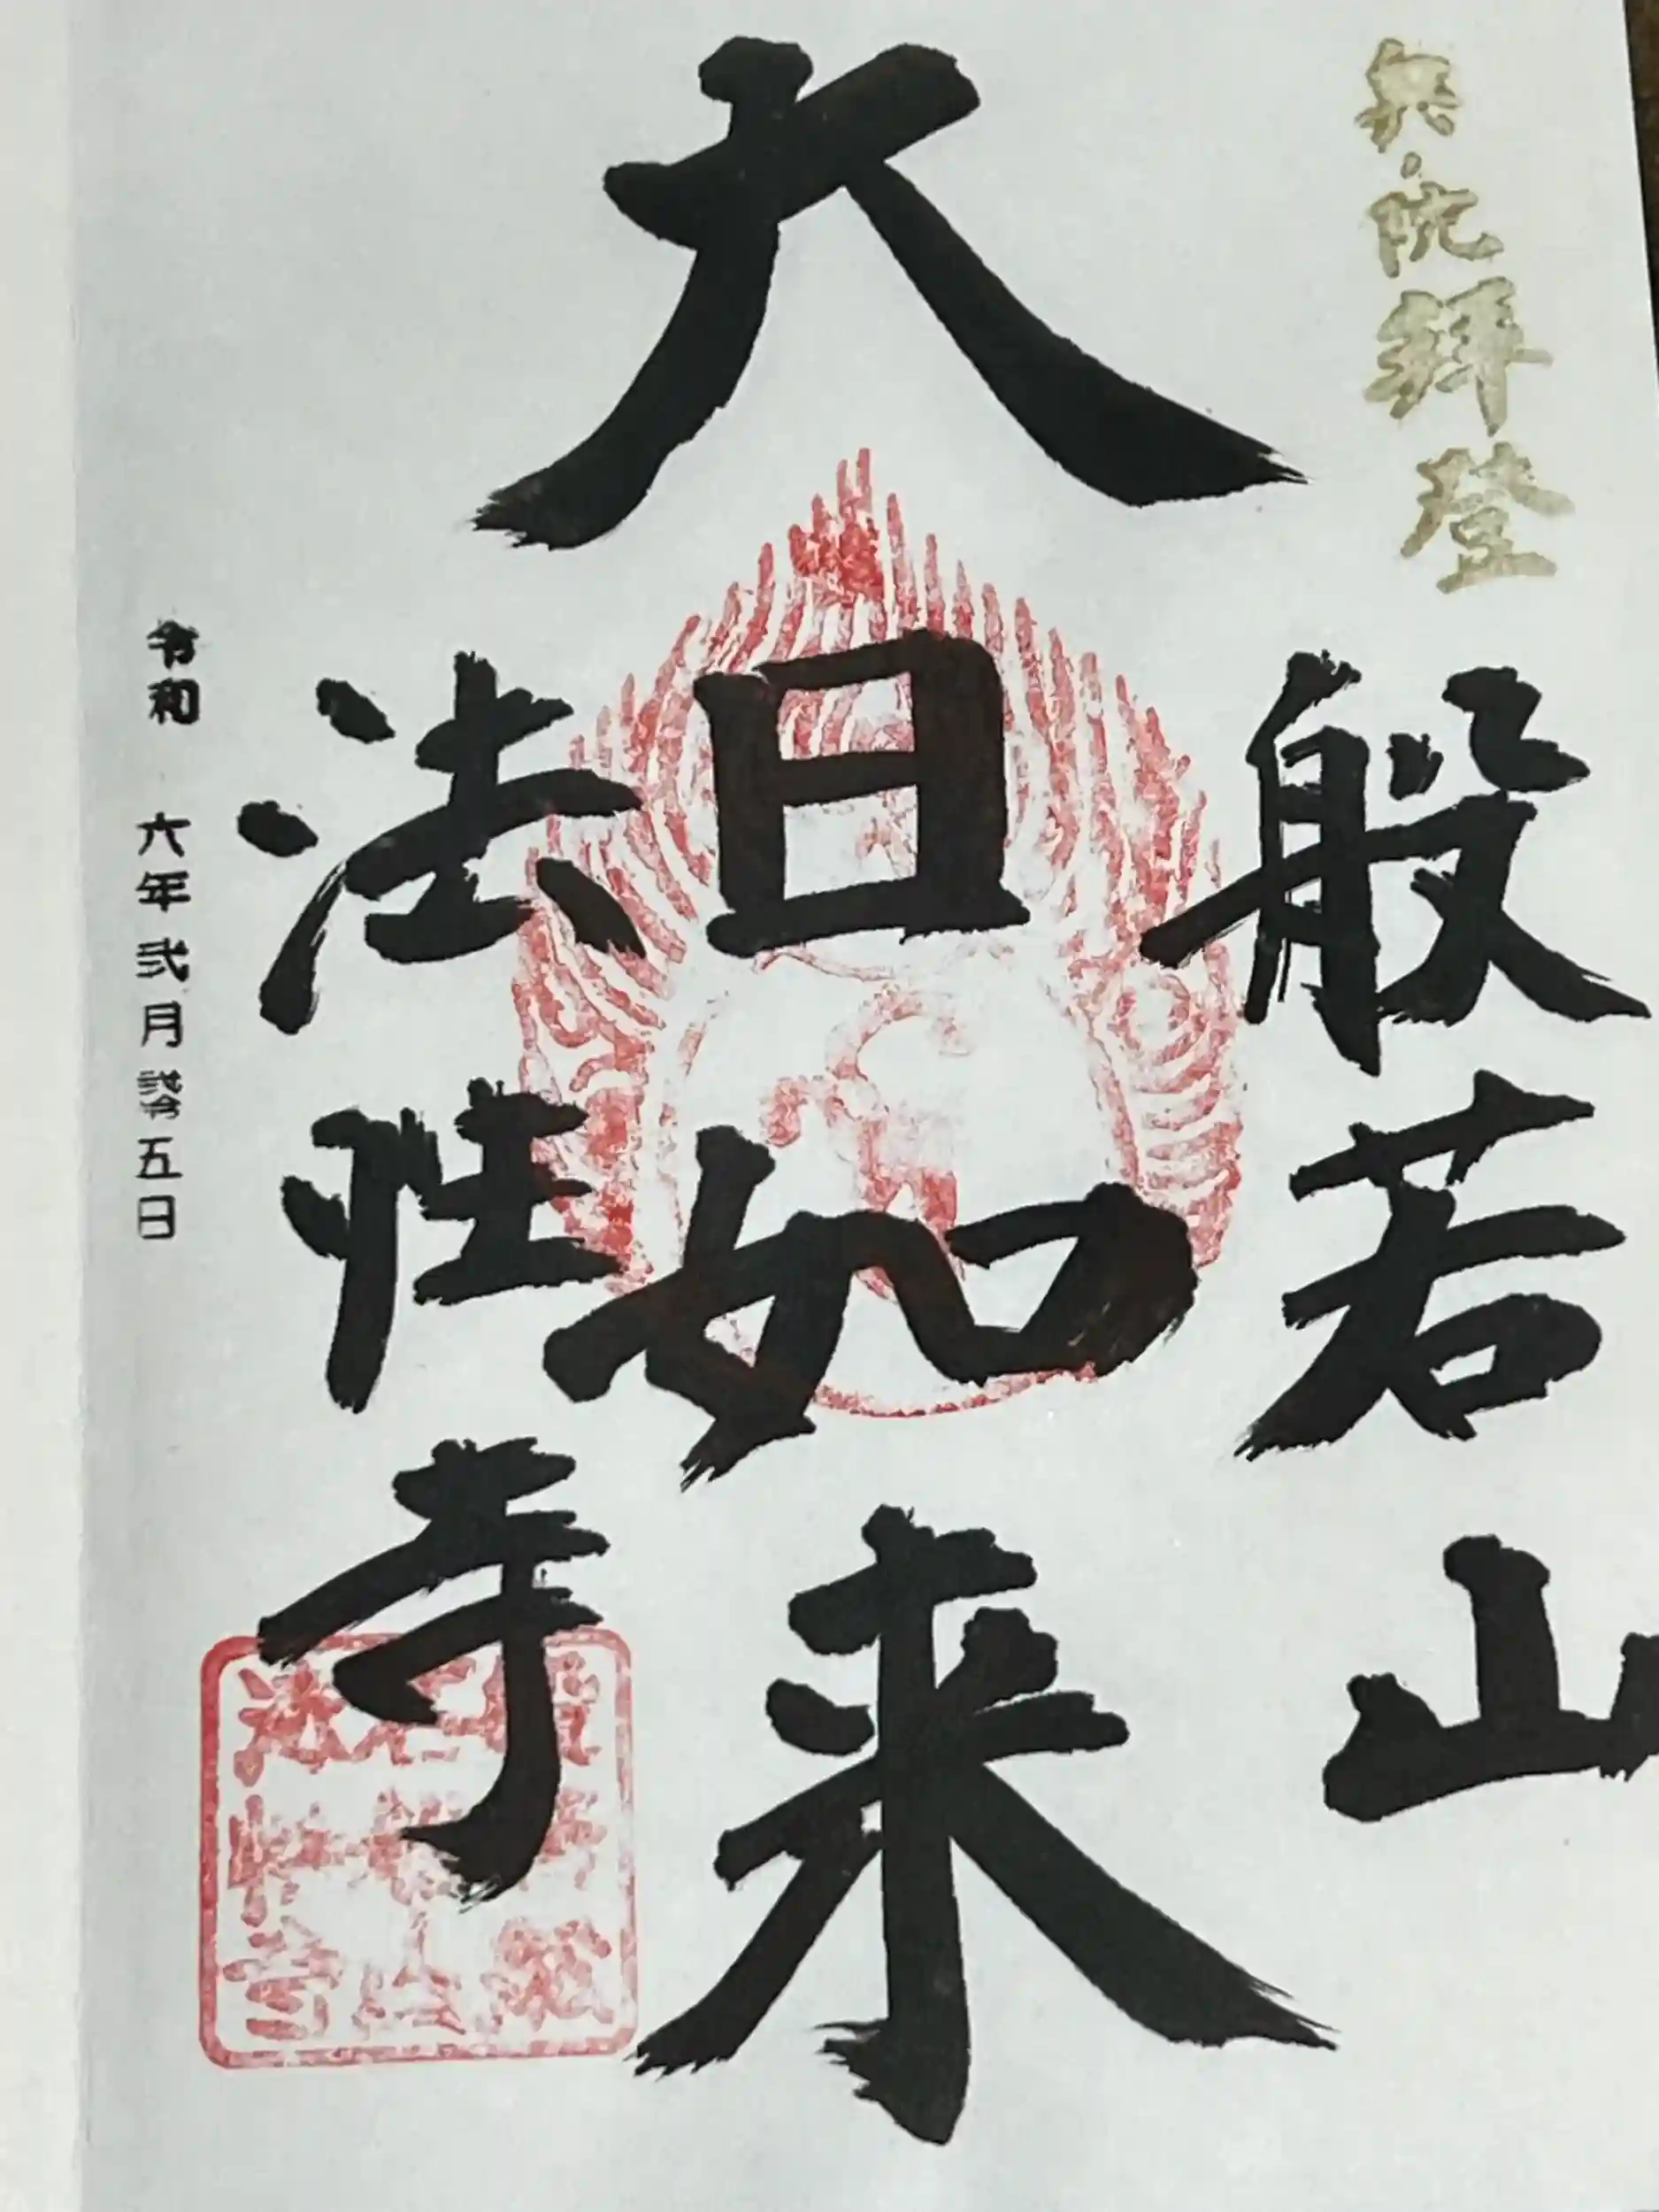 奥の院拜登
般若山
大日如来
法性寺
令和 六年弐月零五日